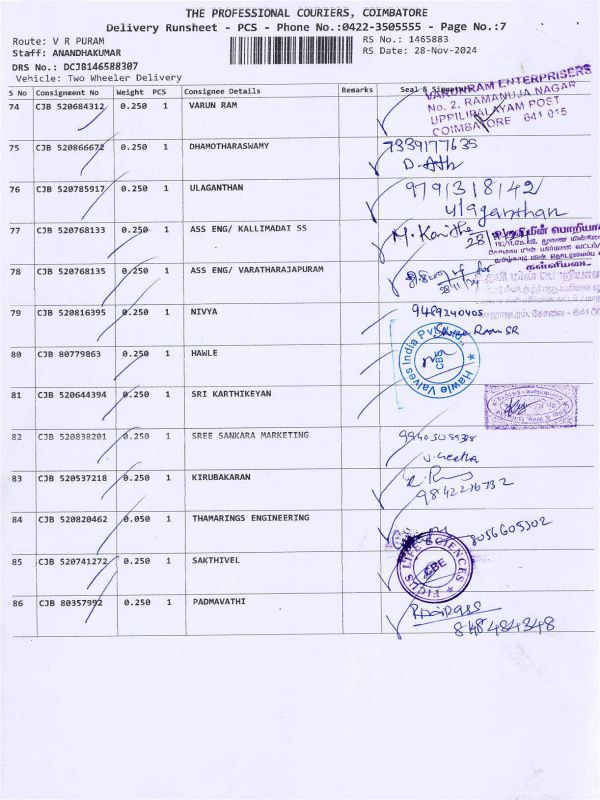 THE PROFESSIONAL COURIERS, COIMBATORE
Delivery Runsheet - PCS - Phone No.:0422-3505555 - Page No.:7
Route: V R PURAM
RS No.: 1465883
Staff: ANANDHAKUMAR
RS Date: 28-Nov-2024
DRS No.: DCJB146588307
Vehicle: Two Wheeler Delivery
S No Consignment No Weight PCS Consignee Details Remarks Seal & Signature
74 CJB 520684312 0.250 1 VARUN RAM
VARUNRAM ENTERPRISERS
No. 2, RAMANUJA NAGAR
UPPILIPALAYAM POST
COIMBATORE 641 015
75 CJB 520866672 0.250 1 DHAMOTHARASWAMY
7339177635
76 CJB 520785917 0.250 1 ULAGANTHAN
9791318142
Ulaganthan
77 CJB 520768133 0.250 1 ASS ENG/ KALLIMADAI SS
78 CJB 520768135 0.250 1 ASS ENG/ VARATHARAJAPURAM
79 CJB 520816395 0.250 1 NIVYA
9489240405
80 CJB 80779863 0.250 1 HAWLE
Hawle Valves India Pvt. Ltd.
CBE
81 CJB 520644394 0.250 1 SRI KARTHIKEYAN
82 CJB 520838201 0.250 1 SREE SANKARA MARKETING
V. Geetha
83 CJB 520537218 0.250 1 KIRUBAKARAN
84 CJB 520820462 0.050 1 THAMARINGS ENGINEERING
8056605302
85 CJB 520741272 0.250 1 SAKTHIVEL
FICUS LIFE SCIENCES
CBE
86 CJB 80357992 0.250 1 PADMAVATHI